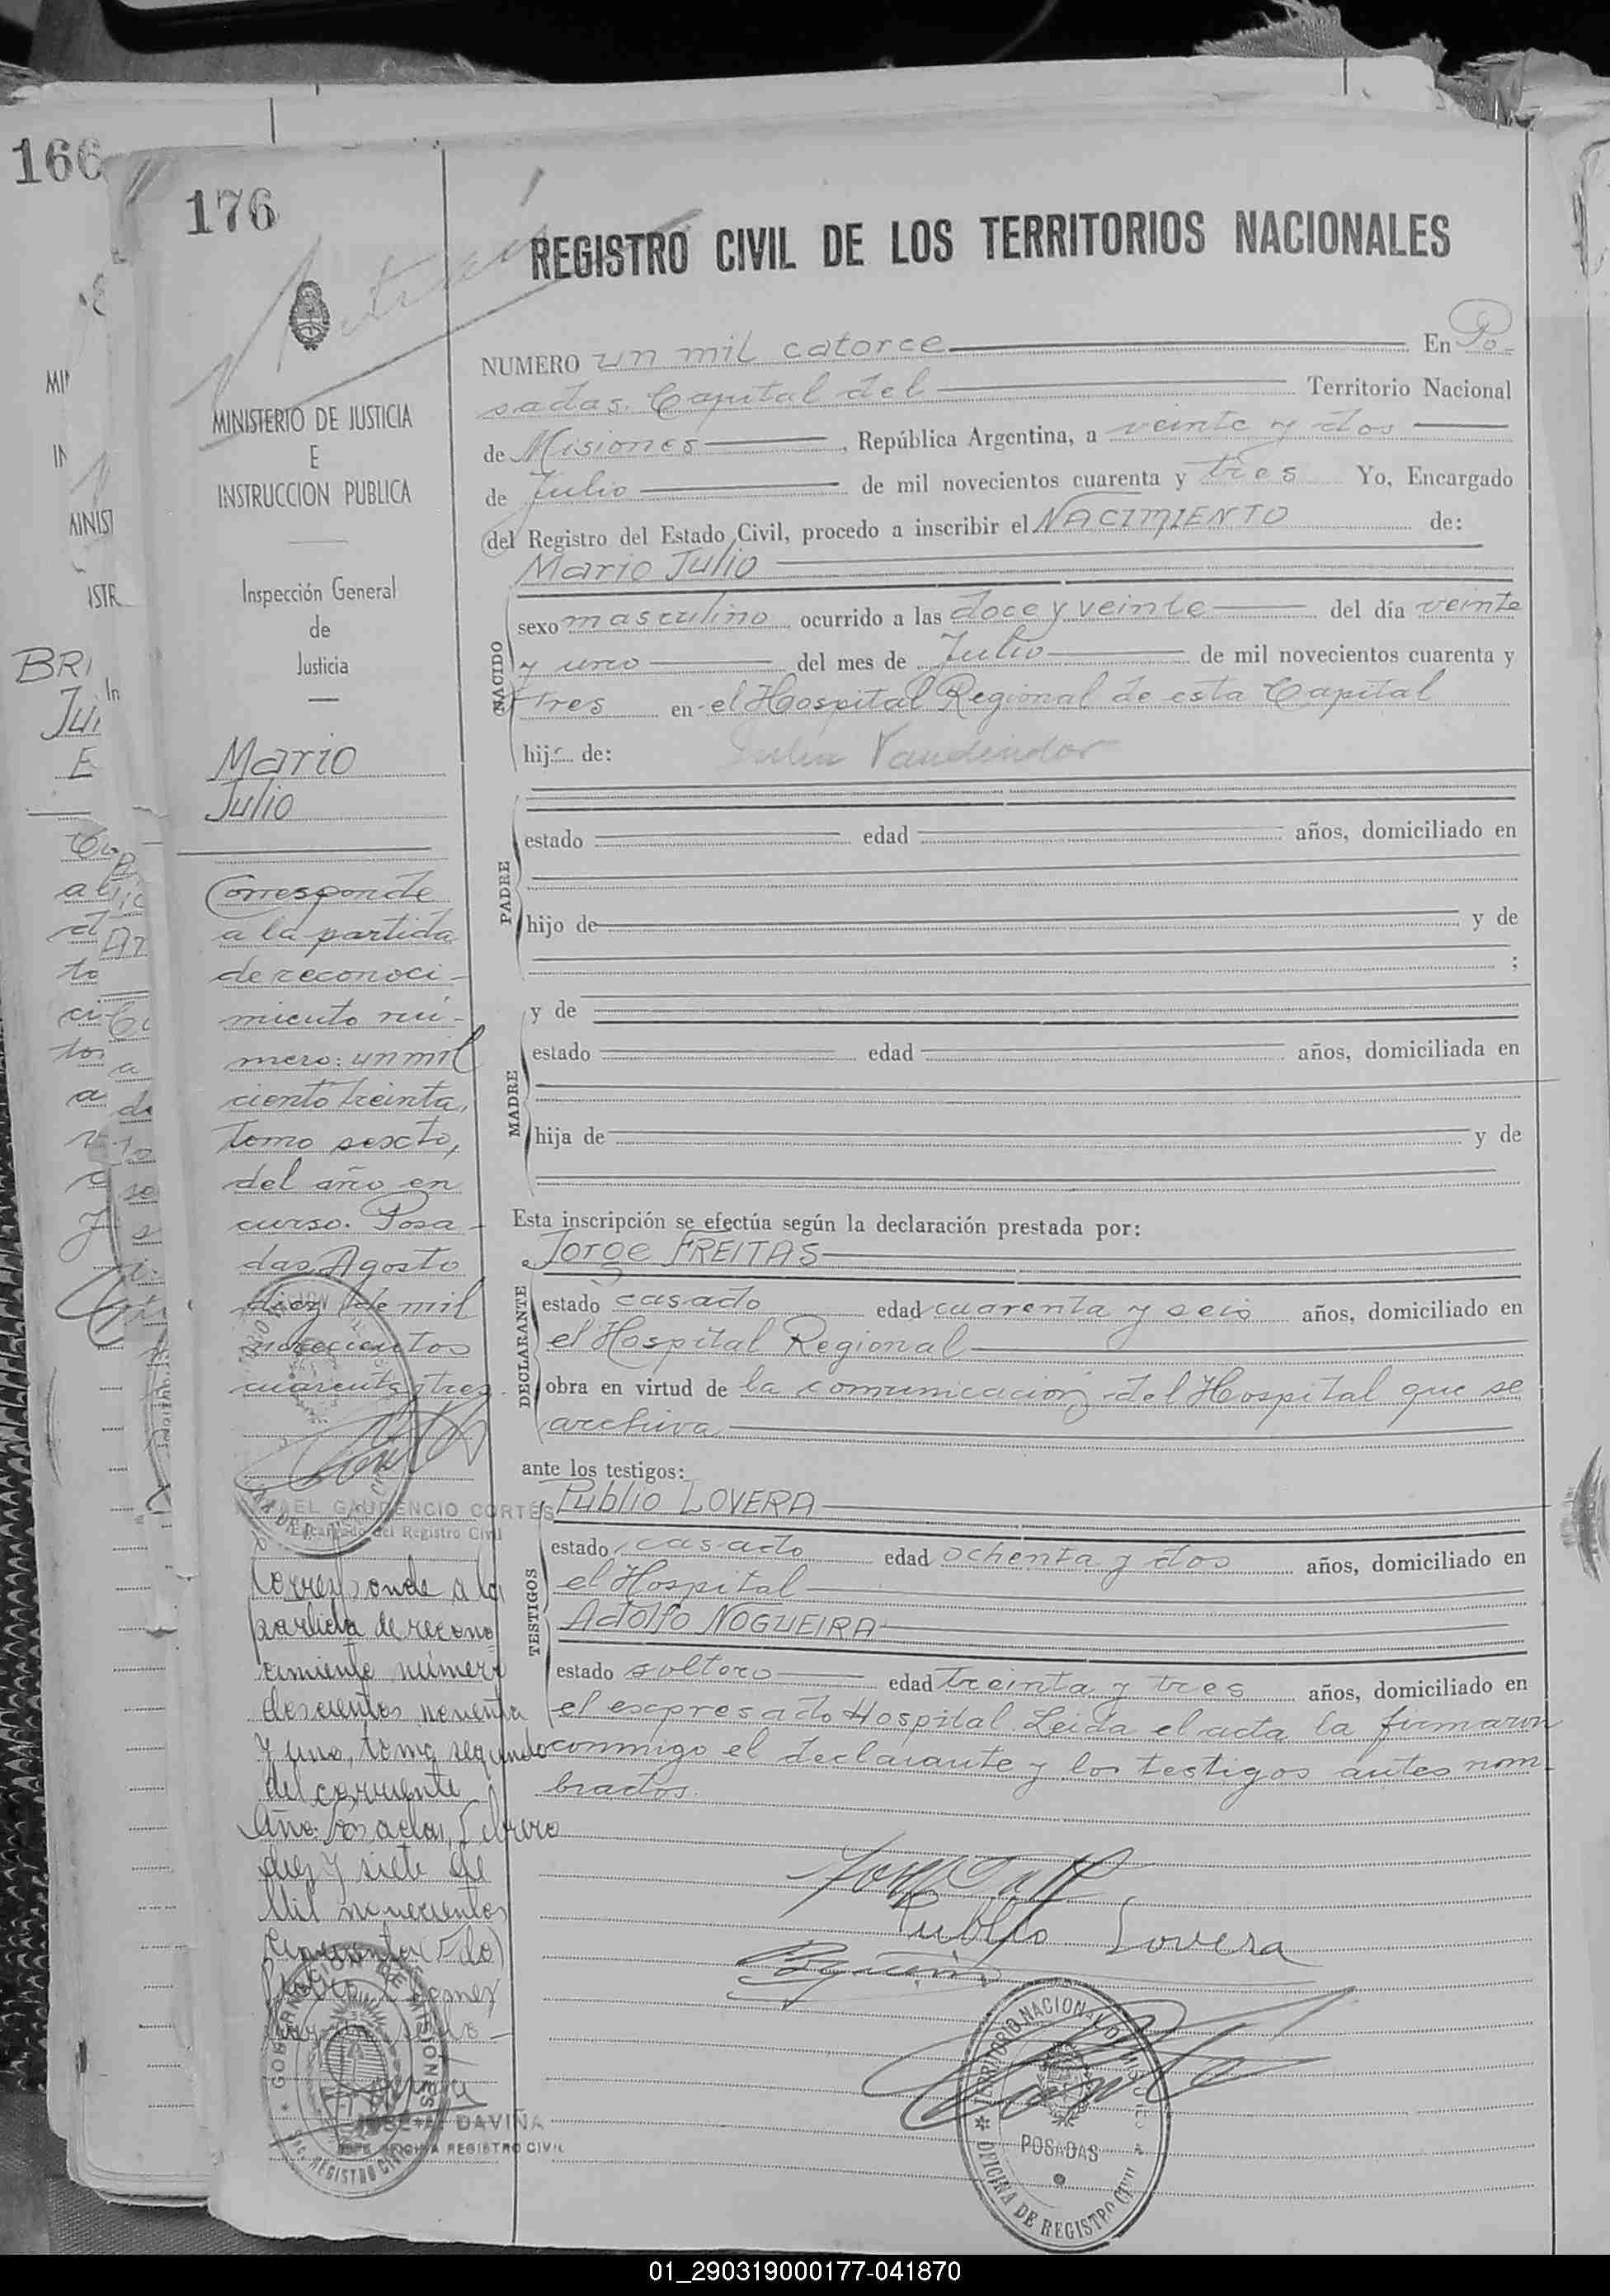 166
176
REGISTRO CIVIL DE LOS TERRITORIOS NACIONALES
MINISTERIO DE JUSTICIA
E
INSTRUCCION PUBLICA
Inspección General
de
Justicia
Mario
Julio
Corresponde
a la partida
de reconoci-
miento nú-
mero: un mil
ciento treinta,
tomo sexto,
del año en
curso. Posa-
das, Agosto
diez de mil
novecientos
cuarenta y tres.
GAUDENCIO CORTÉS
Encargado del Registro Civil
Corresponde a la
partida de recono
cimiento número
doscientos noventa
y uno, tomo segundo
del corriente
Año. Posadas, Febrero
diez y siete de
Mil novecientos
GOBERNACION DE MISIONES
REGISTRO CIVIL
DAVIÑA
JEFE OFICINA REGISTRO CIVIL
NUMERO un mil catorce En Po-
sadas. Capital del Territorio Nacional
de Misiones, República Argentina, a veinte y dos
de Julio de mil novecientos cuarenta y tres Yo, Encargado
del Registro del Estado Civil, procedo a inscribir el NACIMIENTO de:
Mario Julio
NACIDO
sexo masculino ocurrido a las doce y veinte del día veinte
y uno del mes de Julio de mil novecientos cuarenta y
tres en el Hospital Regional de esta Capital
hijo de:
PADRE
estado edad años, domiciliado en
hijo de y de
;
MADRE
y de
estado edad años, domiciliada en
hija de y de
Esta inscripción se efectúa según la declaración prestada por:
Jorge FREITAS
DECLARANTE
estado casado edad cuarenta y seis años, domiciliado en
el Hospital Regional
obra en virtud de la comunicación del Hospital que se
archiva
ante los testigos:
Publio LOVERA
TESTIGOS
estado casado edad ochenta y dos años, domiciliado en
el Hospital
Adolfo NOGUEIRA
estado soltero edad treinta y tres años, domiciliado en
el expresado Hospital. Leida el acta la firmaron
conmigo el declarante y los testigos antes nom-
brados.
Publio Lovera
TERRITORIO NACIONAL DE MISIONES
POSADAS
OFICINA DE REGISTRO CIVIL
01_290319000177-041870